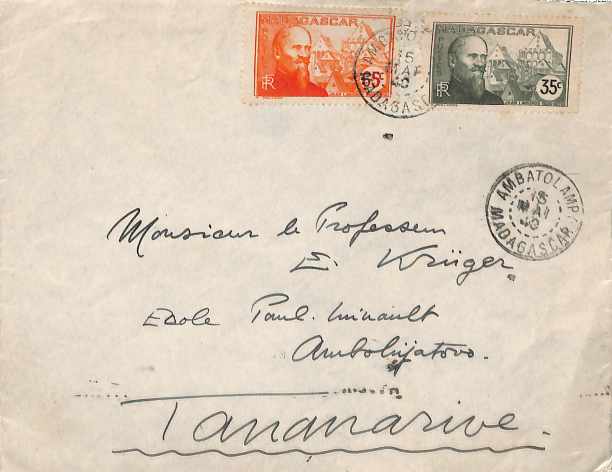 MADAGASCAR
RF
65c
MADAGASCAR
RF
35c
15
MADAGASCAR
AMBATOLAMPY
15
MAI
MADAGASCAR
Monsieur le Professeur
E. Krüger.
Ecole Paul. Minault
Ambohijatovo.
Tananarive.